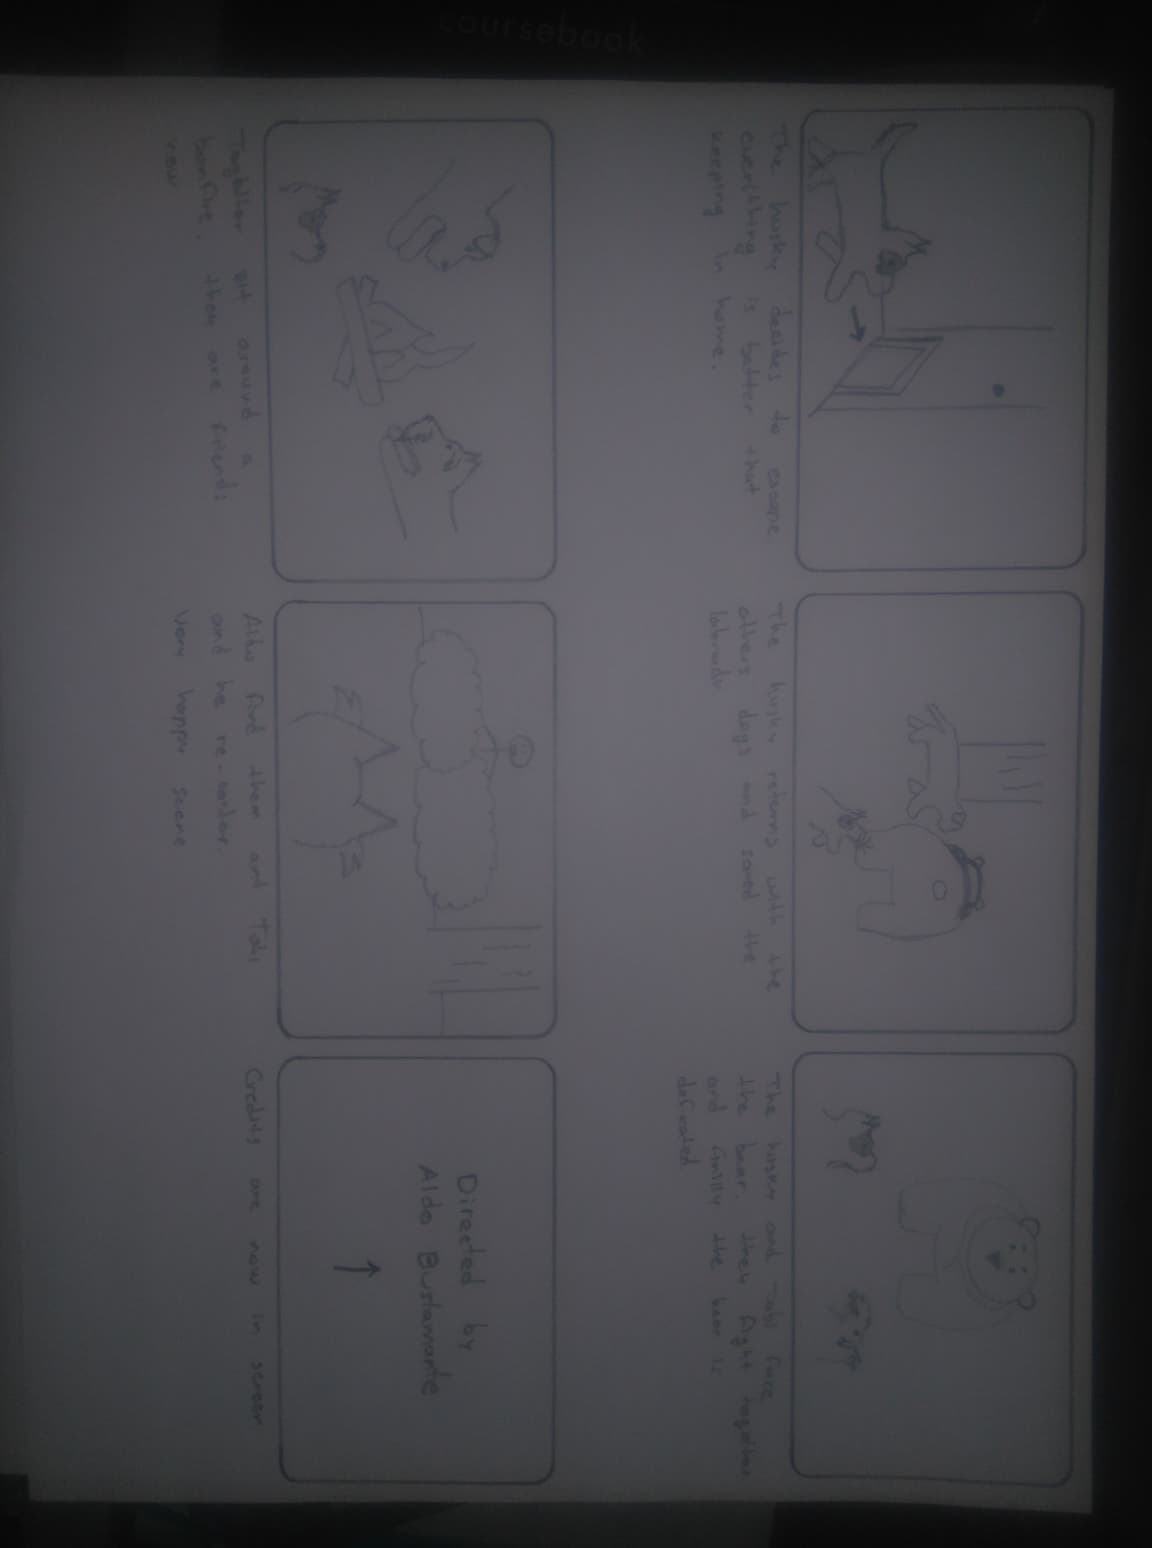 coursebook
The husky decides to escape
everything is better that
keeping in home.
The husky returns with the
others days and saved the
labrador
The husky and Tobi face
the bear. they fight together
and finilly the bear is
defeated
Toghether sit around a
bonfire. they are friends
now
Aldo find them and Tobi
and he re-
Very happy scene
Directed by
Aldo Bustamante
Credits are now in screen